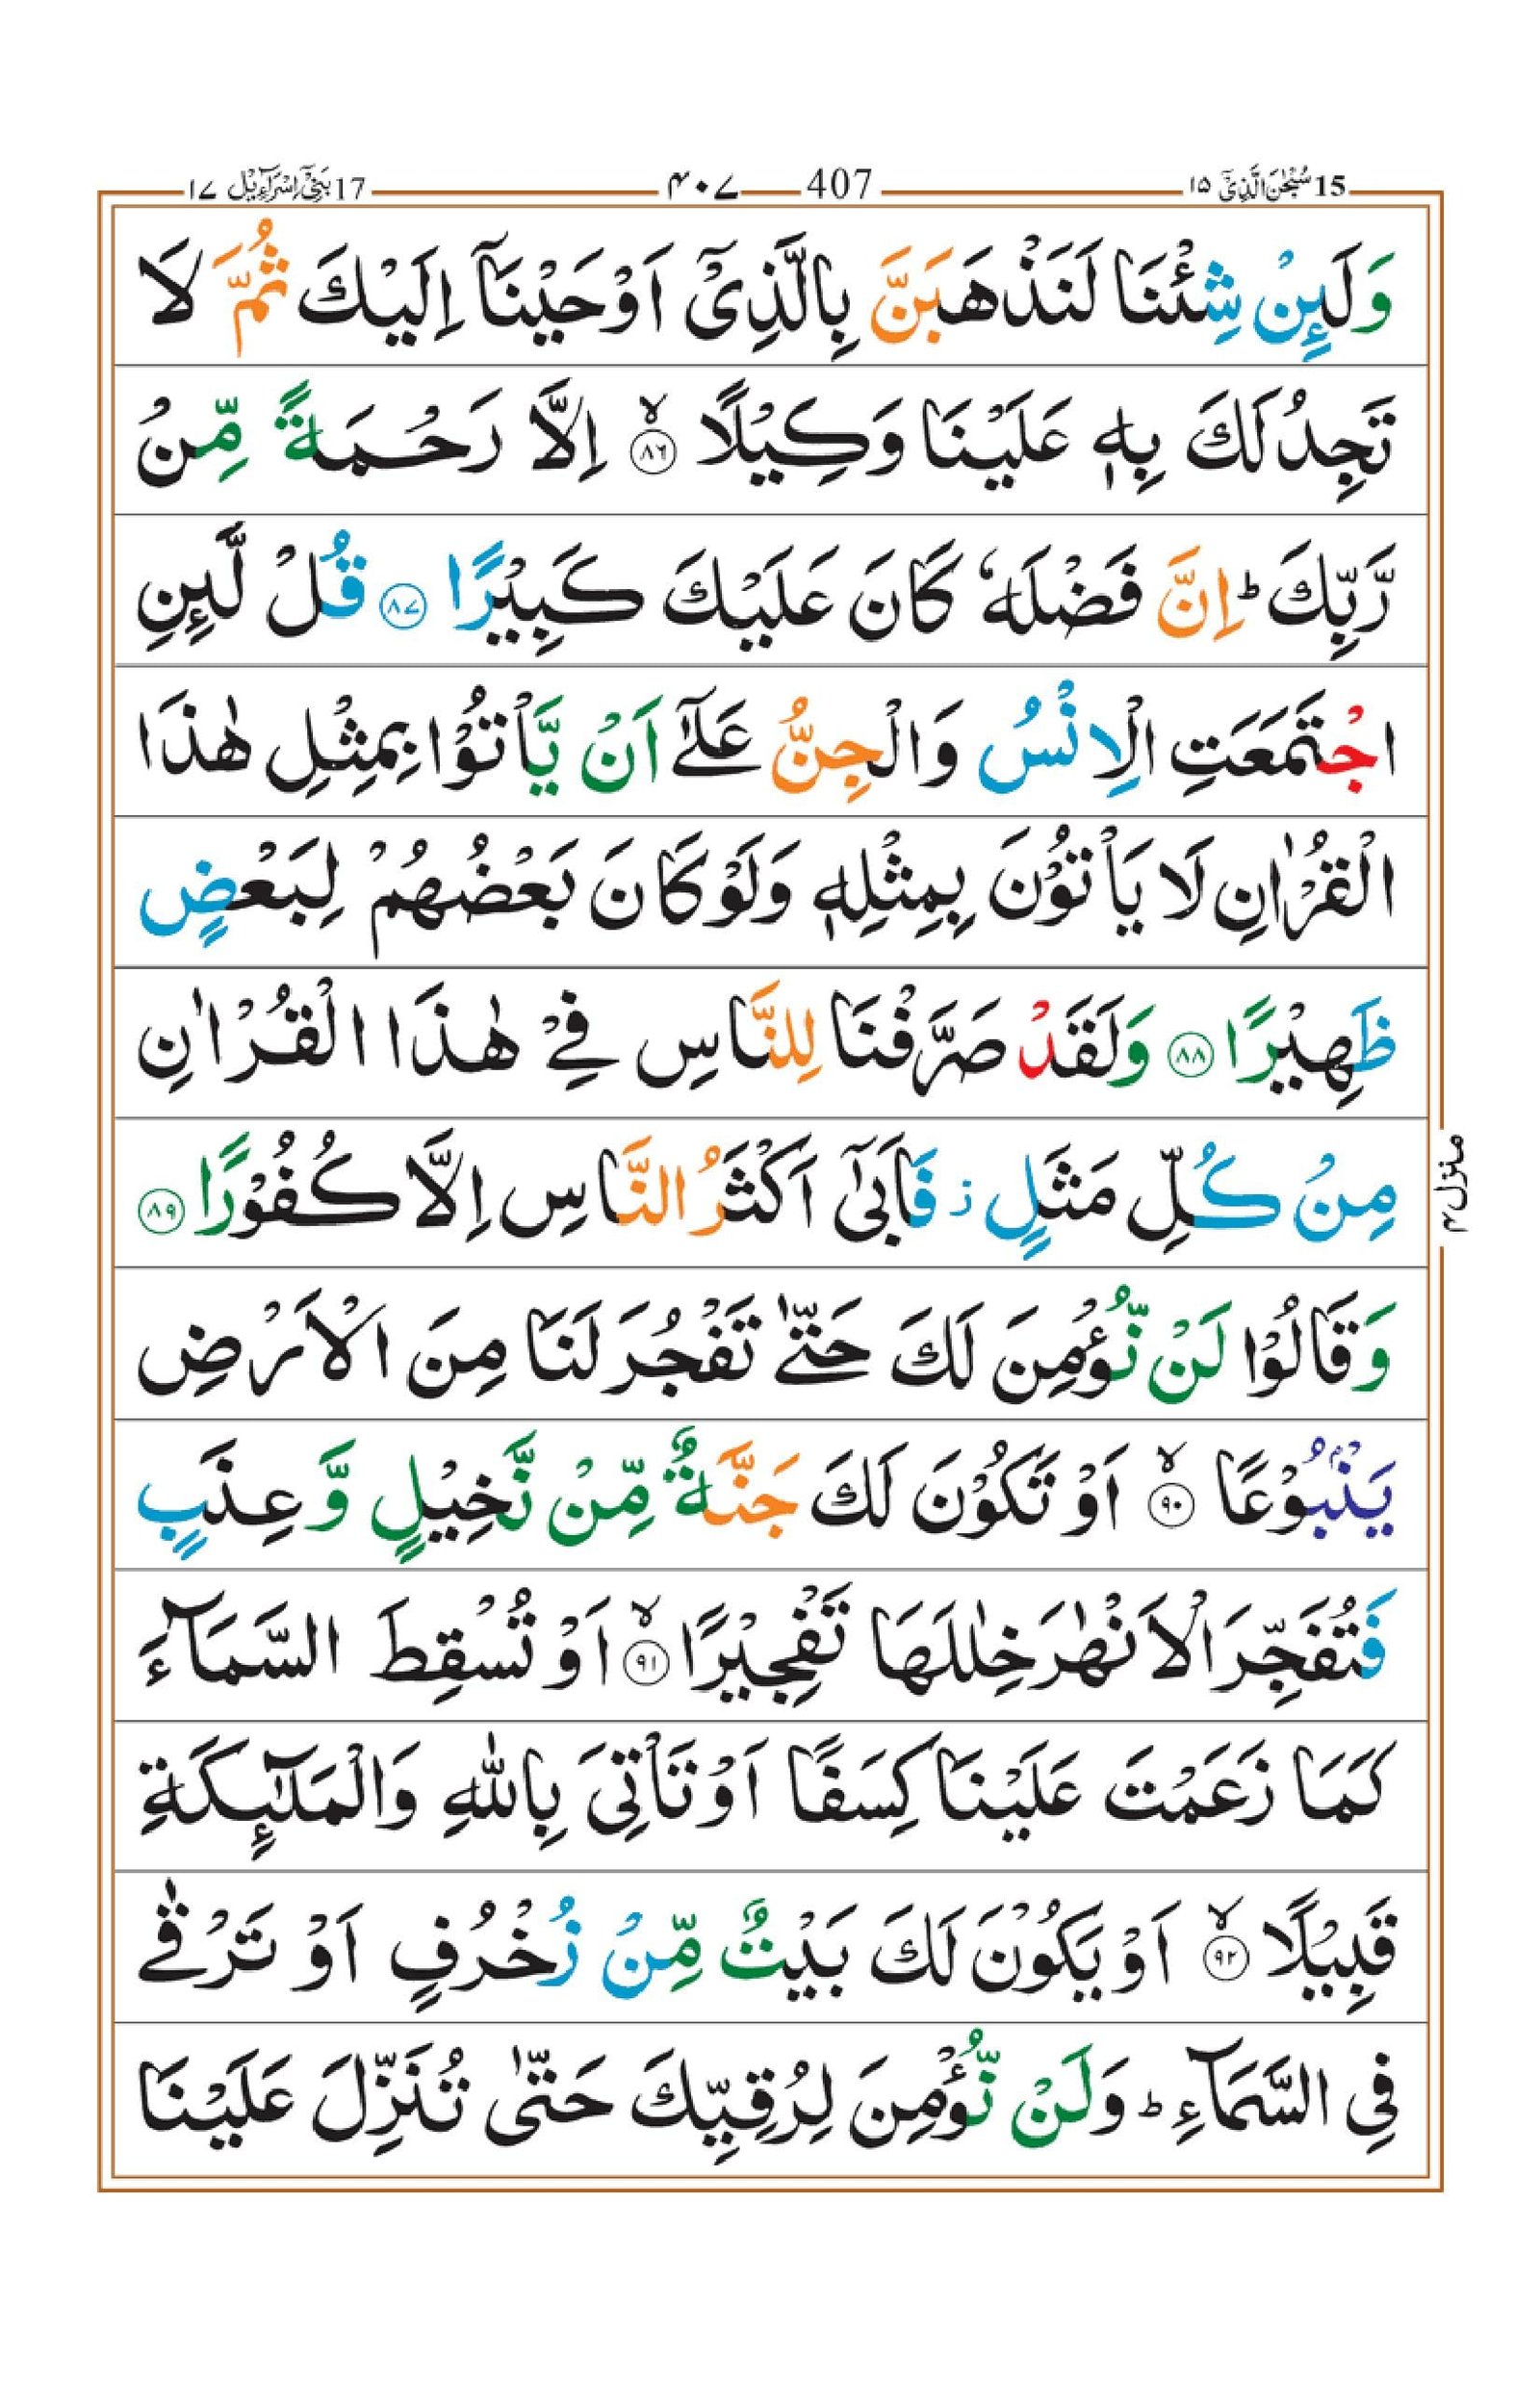 15 سُبْحٰنَ الَّذِیْۤ ۱۵ 407 ۴۰۷ 17 بَنِیْۤ اِسْرَآءِیْل ۱۷
وَلَىِٕنْ شِئْنَا لَنَذْهَبَنَّ بِالَّذِیْۤ اَوْحَیْنَاۤ اِلَیْكَ ثُمَّ لَا
تَجِدُ لَكَ بِهٖ عَلَیْنَا وَكِیْلًا ۙ۝۸۶ اِلَّا رَحْمَةً مِّنْ
رَّبِّكَ ؕ اِنَّ فَضْلَهٗ كَانَ عَلَیْكَ كَبِیْرًا ۝۸۷ قُلْ لَّىِٕنِ
اجْتَمَعَتِ الْاِنْسُ وَالْجِنُّ عَلٰۤی اَنْ یَّاْتُوْا بِمِثْلِ هٰذَا
الْقُرْاٰنِ لَا یَاْتُوْنَ بِمِثْلِهٖ وَلَوْ كَانَ بَعْضُهُمْ لِبَعْضٍ
ظَهِیْرًا ۝۸۸ وَلَقَدْ صَرَّفْنَا لِلنَّاسِ فِیْ هٰذَا الْقُرْاٰنِ
مِنْ كُلِّ مَثَلٍ ؗ فَاَبٰۤی اَكْثَرُ النَّاسِ اِلَّا كُفُوْرًا ۝۸۹
وَقَالُوْا لَنْ نُّؤْمِنَ لَكَ حَتّٰی تَفْجُرَ لَنَا مِنَ الْاَرْضِ
یَنْۢبُوْعًا ۙ۝۹۰ اَوْ تَكُوْنَ لَكَ جَنَّةٌ مِّنْ نَّخِیْلٍ وَّعِنَبٍ
فَتُفَجِّرَ الْاَنْهٰرَ خِلٰلَهَا تَفْجِیْرًا ۙ۝۹۱ اَوْ تُسْقِطَ السَّمَآءَ
كَمَا زَعَمْتَ عَلَیْنَا كِسَفًا اَوْ تَاْتِیَ بِاللّٰهِ وَالْمَلٰٓىِٕكَةِ
قَبِیْلًا ۙ۝۹۲ اَوْ یَكُوْنَ لَكَ بَیْتٌ مِّنْ زُخْرُفٍ اَوْ تَرْقٰی
فِی السَّمَآءِ ؕ وَلَنْ نُّؤْمِنَ لِرُقِیِّكَ حَتّٰی تُنَزِّلَ عَلَیْنَا
منزل ۴